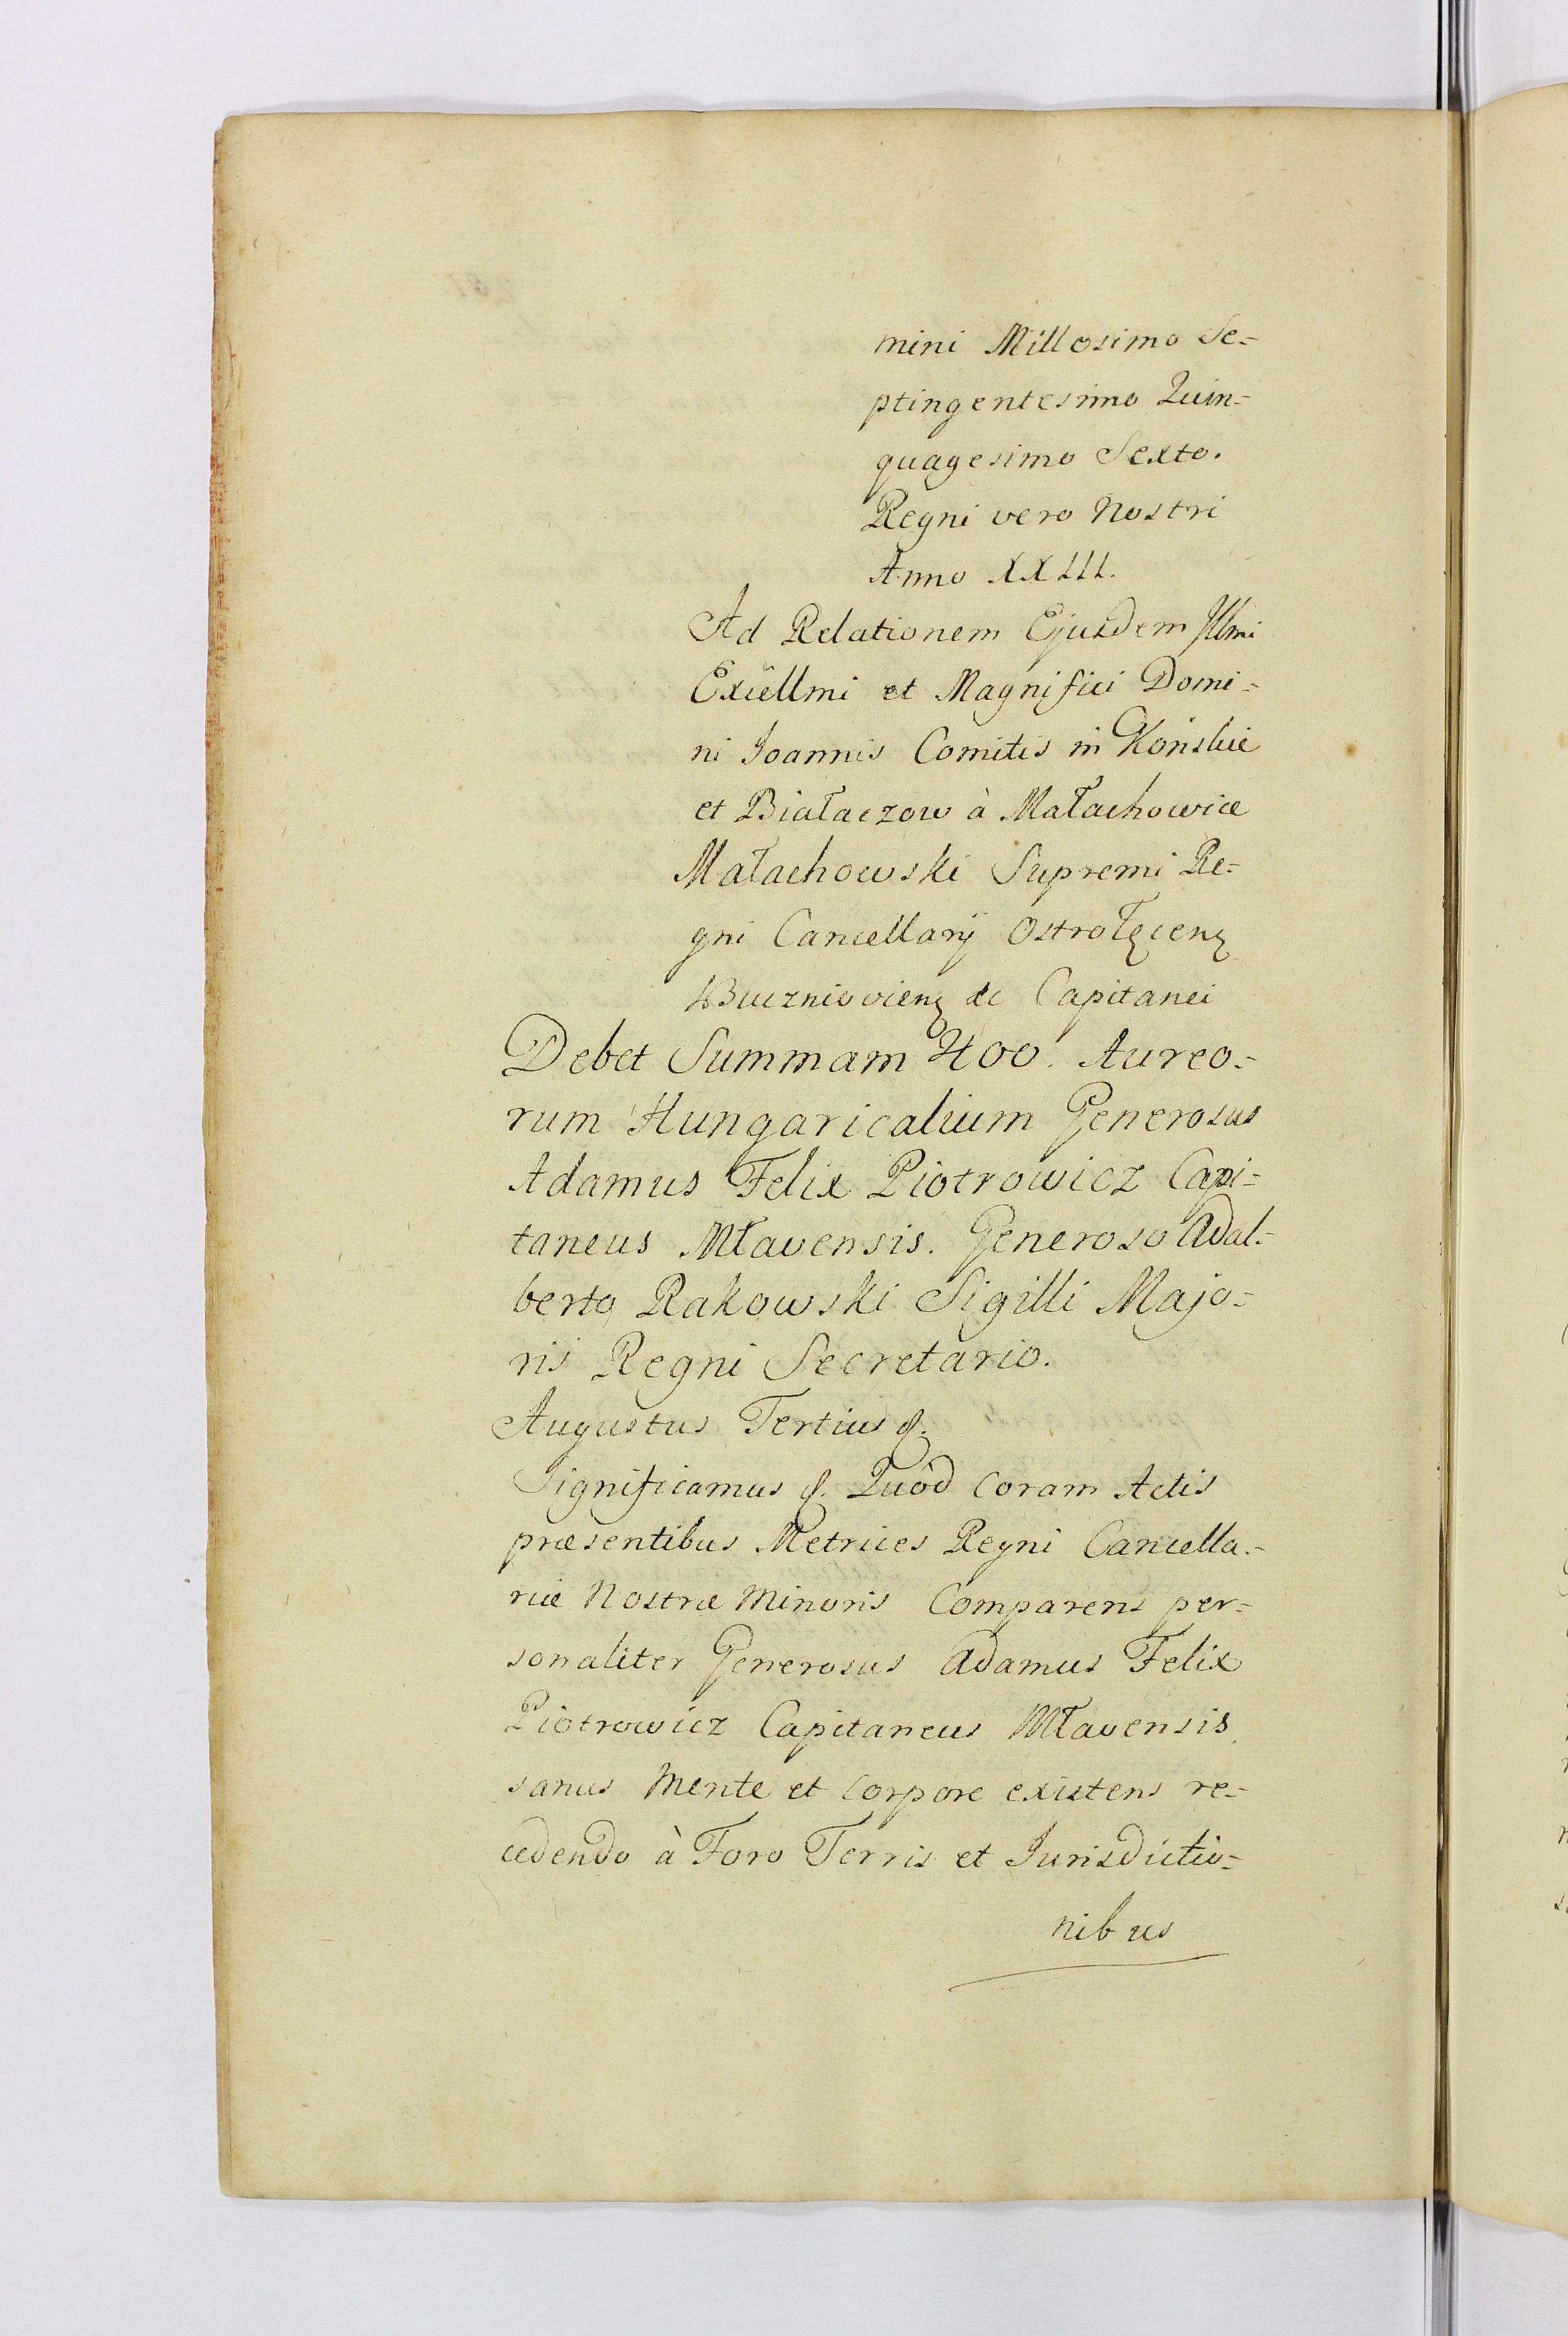 mini Millesimo Se=
ptingentesimo Quin=
quagesimo Sexto.
Regni vero Nostri
Anno XXIII.
Ad Relationem Ejusdem Illmi
Excellmi et Magnifici Domi=
ni Joannis Comitis in Końskie
et Białaczow à Małachowice
Małachowski Supremi Re=
gni Cancellarij Ostrołęcen
&c Capitanei
Debet Summam 400. Aureo=
rum Hungaricalium Generosus
Adamus Felix Piotrowicz Capi=
taneus Mławensis. Generoso Adal=
berto Rakowski Sigilli Majo=
ris Regni Secretario.
Augustus Tertius &.
Significamus &. Quòd coram Actis
præsentibus Metrices Regni Cancella=
riæ Nostræ Minoris Comparens per=
sonaliter Generosus Adamus Felix
Piotrowicz Capitaneus Młavensis
sanus Mente et corpore existens re=
cedendo à Foro Terris et Jurisdictio=
nibus